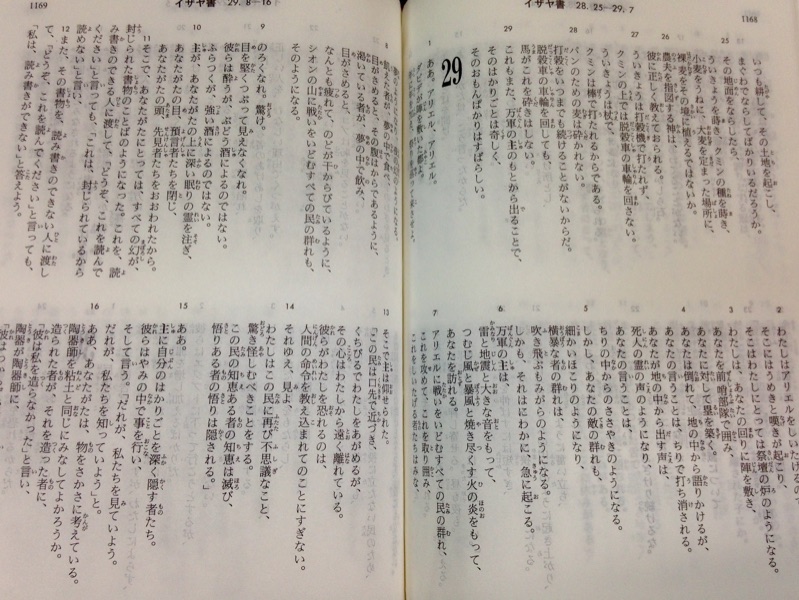 イザヤ書 28.25―29.7 1168
25 いつも耕して、その土地を起こし、
まぐわでならしてばかりいるだろうか。
その地面をならしたら、
ういきょうを蒔き、クミンの種を蒔き、
小麦をうねに、大麦を定まった場所に、
裸麦をその境に植えるではないか。
26 農夫を指図する神は、
彼に正しく教えておられる。
27 ういきょうは打穀機で打たれず、
クミンの上では脱穀車の車輪を回さない。
ういきょうは杖で、
クミンは棒で打たれるからである。
28 パンのための麦は砕かれない。
打穀をいつまでも続けることがないからだ。
脱穀車の車輪を回しても、
馬がこれを砕きはしない。
29 これもまた、万軍の主のもとから出ることで、
そのはかりごとは奇しく、
そのおもんぱかりはすばらしい。
29
1 ああ。アリエル、アリエル。
ダビデが陣を敷いた都よ。
2 わたしはアリエルをしいたげるので、
そこにはうめきと嘆きが起こり、
そこはわたしにとっては祭壇の炉のようになる。
3 わたしは、あなたの回りに陣を敷き、
あなたを前哨部隊で囲み、
あなたに対して塁を築く。
4 あなたは倒れて、地の中から語りかけるが、
あなたの言うことは、ちりで打ち消される。
あなたが地の中から出す声は、
死人の霊の声のようになり、
あなたの言うことは、
ちりの中からのささやきのようになる。
5 しかし、あなたの敵の群れも、
細かいほこりのようになり、
横暴な者の群れは、
吹き飛ぶもみがらのようになる。
しかも、それはにわかに、急に起こる。
6 万軍の主は、
雷と地震と大きな音をもって、
つむじ風と暴風と焼き尽くす火の炎をもって、
あなたを訪れる。
7 アリエルに戦いをいどむすべての民の群れ、
これを攻めて、これを取り囲み、
これをしいたげる者たちはみな、
イザヤ書 29.8―16 1169
8 飢えた者が、夢の中で食べ、
目がさめると、その腹はからであるように、
渇いている者が、夢の中で飲み、
目がさめると、
なんとも疲れて、のどが干からびているように、
シオンの山に戦いをいどむすべての民の群れも、
そのようになる。
9 のろくなれ。驚け。
目を堅くつぶって見えなくなれ。
彼らは酔うが、ぶどう酒によるのではない。
ふらつくが、強い酒によるのではない。
10 主が、あなたがたの上に深い眠りの霊を注ぎ、
あなたがたの目、預言者たちを閉じ、
あなたがたの頭、先見者たちをおおわれたから。
11 そこで、あなたがたにとっては、すべての幻が、
封じられた書物のことばのようになった。これを、読
み書きのできる人に渡して、「どうぞ、これを読んで
ください」と言っても、「これは、封じられているから
読めない」と言い、
12 また、その書物を、読み書きのできない人に渡し
て、「どうぞ、これを読んでください」と言っても、
「私は、読み書きができない」と答えよう。
13 そこで主は仰せられた。
「この民は口先で近づき、
くちびるでわたしをあがめるが、
その心はわたしから遠く離れている。
彼らがわたしを恐れるのは
人間の命令を教え込まれてのことにすぎない。
14 それゆえ、見よ、
わたしはこの民に再び不思議なこと、
驚き怪しむべきことをする。
この民の知恵ある者の知恵は滅び、
悟りある者の悟りは隠される。」
15 ああ。
主に自分のはかりごとを深く隠す者たち。
彼らはやみの中で事を行い、
そして言う。「だれが、私たちを見ていよう。
だれが、私たちを知っていよう」と。
16 ああ、あなたがたは、物をさかさに考えている。
陶器師を粘土と同じにみなしてよかろうか。
造られた者が、それを造った者に、
「彼は私を造らなかった」と言い、
陶器が陶器師に、